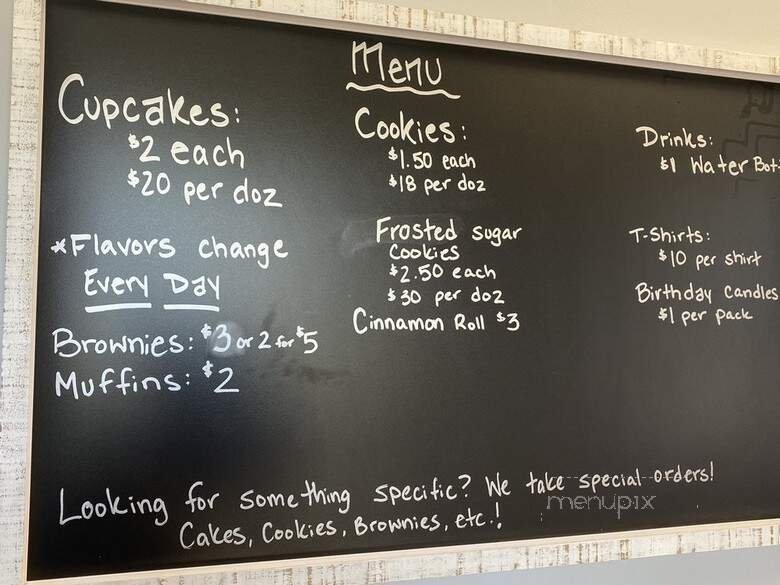 Menu
Cupcakes:
$2 each
$20 per doz
*Flavors change
Every Day
Brownies: $3 or 2 for $5
Muffins: $2
Cookies:
$1.50 each
$18 per doz
Frosted sugar
Cookies
$2.50 each
$30 per doz
Cinnamon Roll $3
Drinks:
$1 Water Bot
T-Shirts:
$10 per shirt
Birthday Candles
$1 per pack
Looking for something specific? We take special orders!
Cakes, Cookies, Brownies, etc.!
menupix